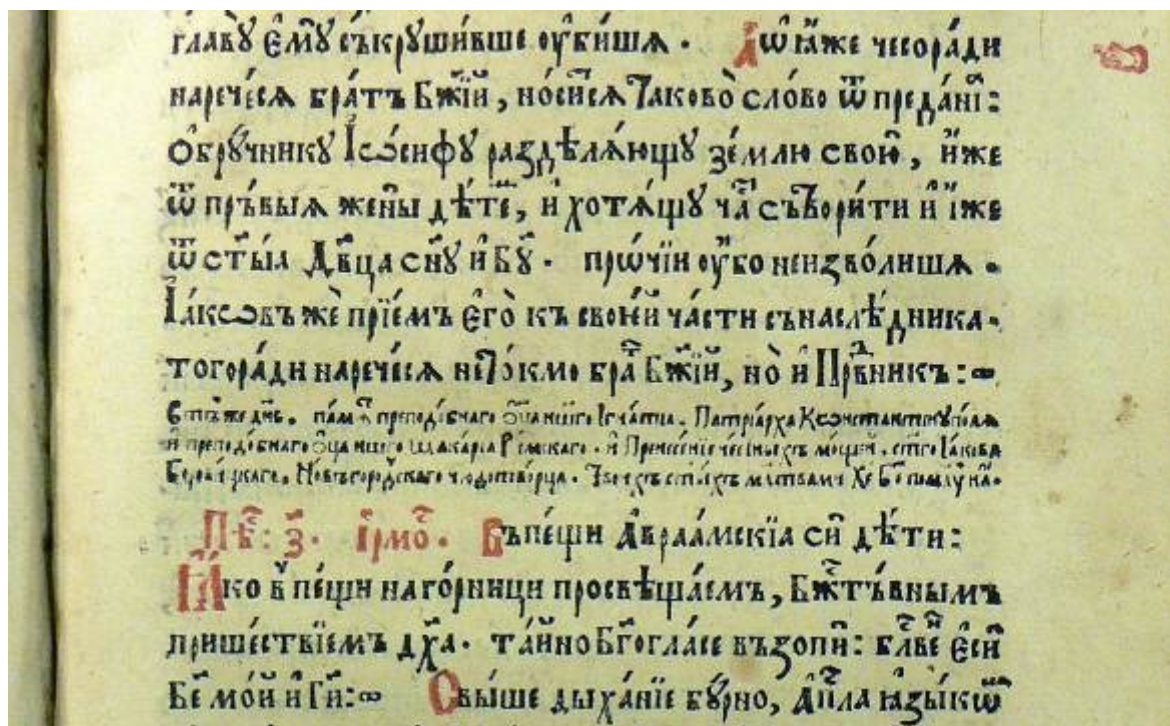 главꙋ̀ є҆мꙋ̀ съкрꙋши́вше ᲂу҆би́шѧ .   А҆ ѡ҆ и҆́же чесора́ди
нарече́сѧ бра́тъ Бж҃їй , но́ситсѧ Таково̀ сло́во ѿ преда́нїѧ :
Ѻ҆брꙋ́чникꙋ І҆ѡ́сифꙋ раздѣлѧ́ющꙋ зе́млю свою̀ , и҆̀же
ѿ пръ́выѧ жены̀ дѣ́тем , и҆ хотѧ́щꙋ ча́сть сътвори́ти и҆ и҆́же
ѿ ст҃ы́ѧ Дв҃ца сн҃ꙋ и҆ Бг҃ꙋ . про́чїи ᲂу҆́бо не и҆зво́лишѧ .
І҆а́кѡвъ жѐ прїе́мъ є҆го̀ къ свое́й ча́сти сънаслѣ́дника .
тогора́ди нарече́сѧ не То́кмо бра́т Бж҃їй , но̀ и҆ Пра́вникъ :
Въ тъ́же дн҃ь . пам̾ѧть преподо́бнаго ѻ҆ц҃а на́шего І҆гна́тїа . Патрїа́рха Кѡнстантинꙋ́полѧ
и҆ преподо́бнаго ѻ҆ц҃а на́шего Мака́рїа Ри́мскаго . и҆ Пренесе́нїе че́стныхъ моще́й . ст҃го І҆а́кова
Боровицкаго . Новъгоро́дскаго чюдотво́рца . Твои́хъ ст҃ы́хъ мл҃твами Хе҃ Бж҃е поми́лꙋй на́с .
Пѣ́с : з҃ . І҆рмо́с . Въ пе́щи А҆враа́мскїа си́ дѣ́ти :
Ꙗ҆́ко в̾ пе́щи на го́рници просвѣща́емъ , Бжⷭ҇твъ́внымъ
прише́ствїемъ дх҃а . та́йно Бг҃огла́се въ́зопи : бл҃ве́нъ є҆сѝ
Бж҃е мо́й и҆ Гд҃и :   Свы́ше дыха́нїе бꙋ́рно , А҆пⷭ҇ла ꙗ҆зы́кѡ